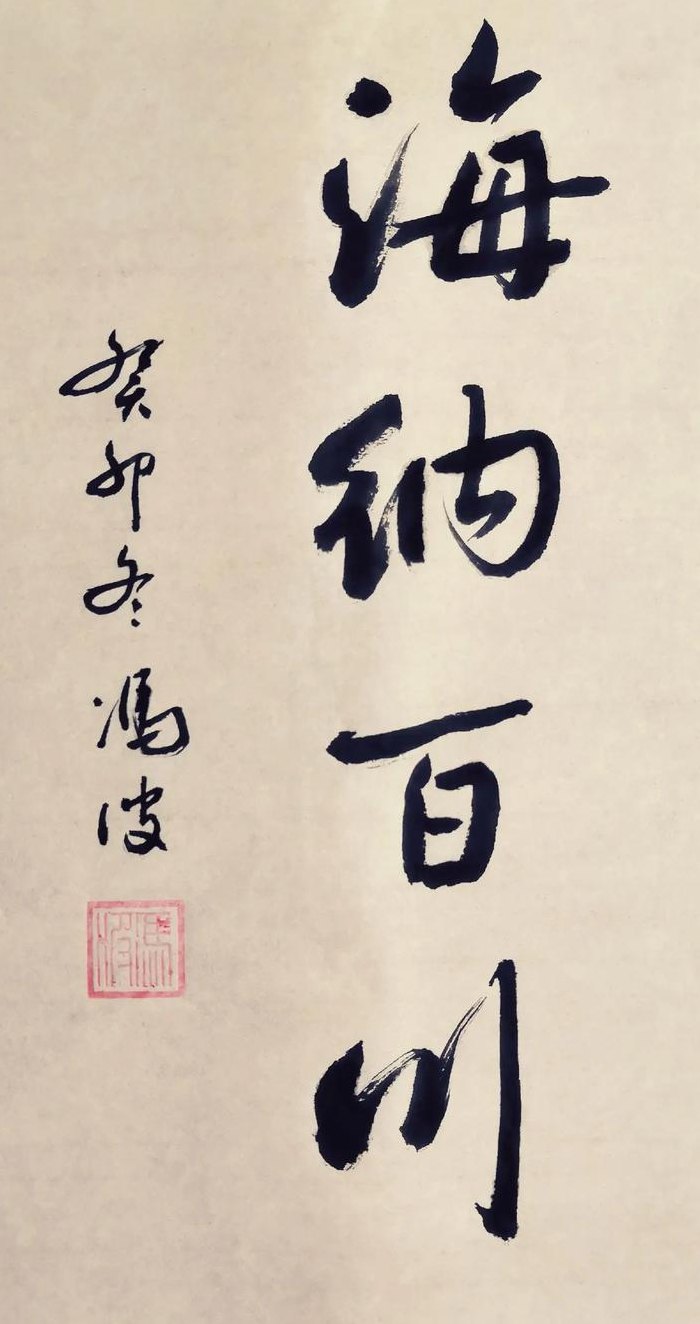 海纳百川
癸卯冬冯波
冯波